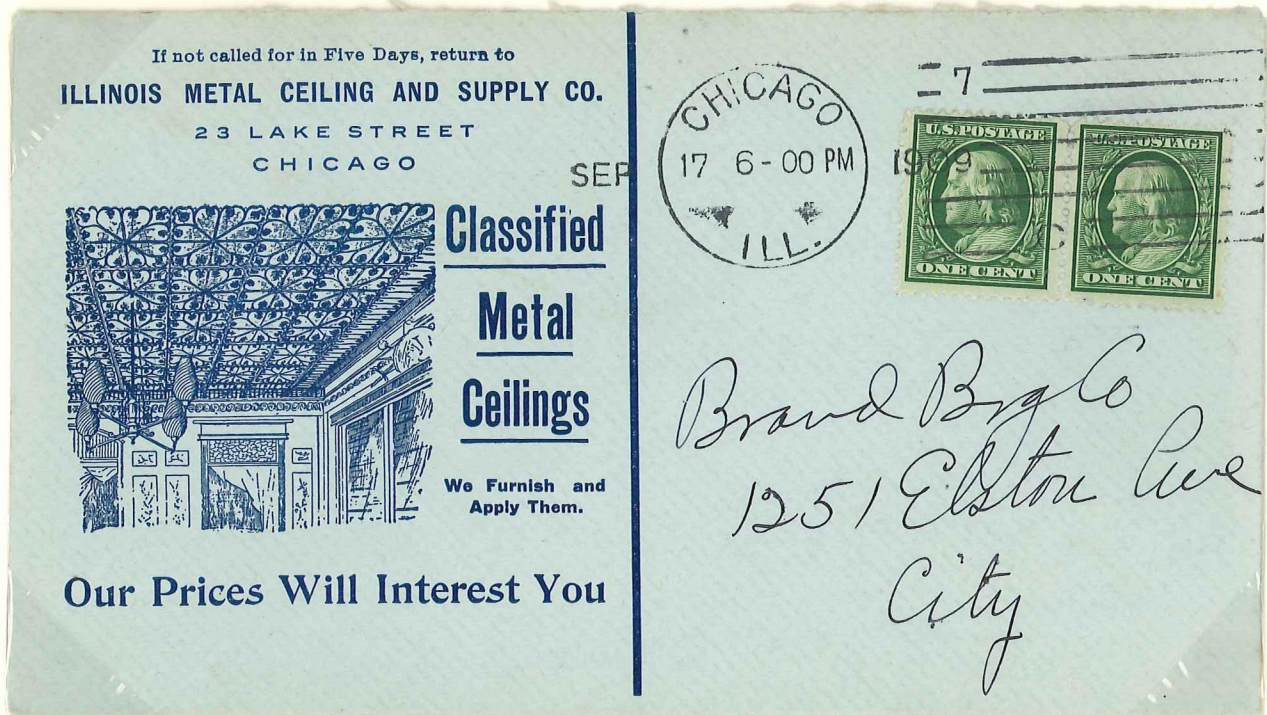 If not called for in Five Days, return to
ILLINOIS METAL CEILING AND SUPPLY CO.
23 LAKE STREET
CHICAGO
Classified
Metal
Ceilings
We Furnish and
Apply Them.
Our Prices Will Interest You
CHICAGO
SEP 17 6-00 PM 1909
ILL.
7
U.S. POSTAGE
ONE CENT
U.S. POSTAGE
ONE CENT
Brand Brg Co
1251 Elston Ave
City